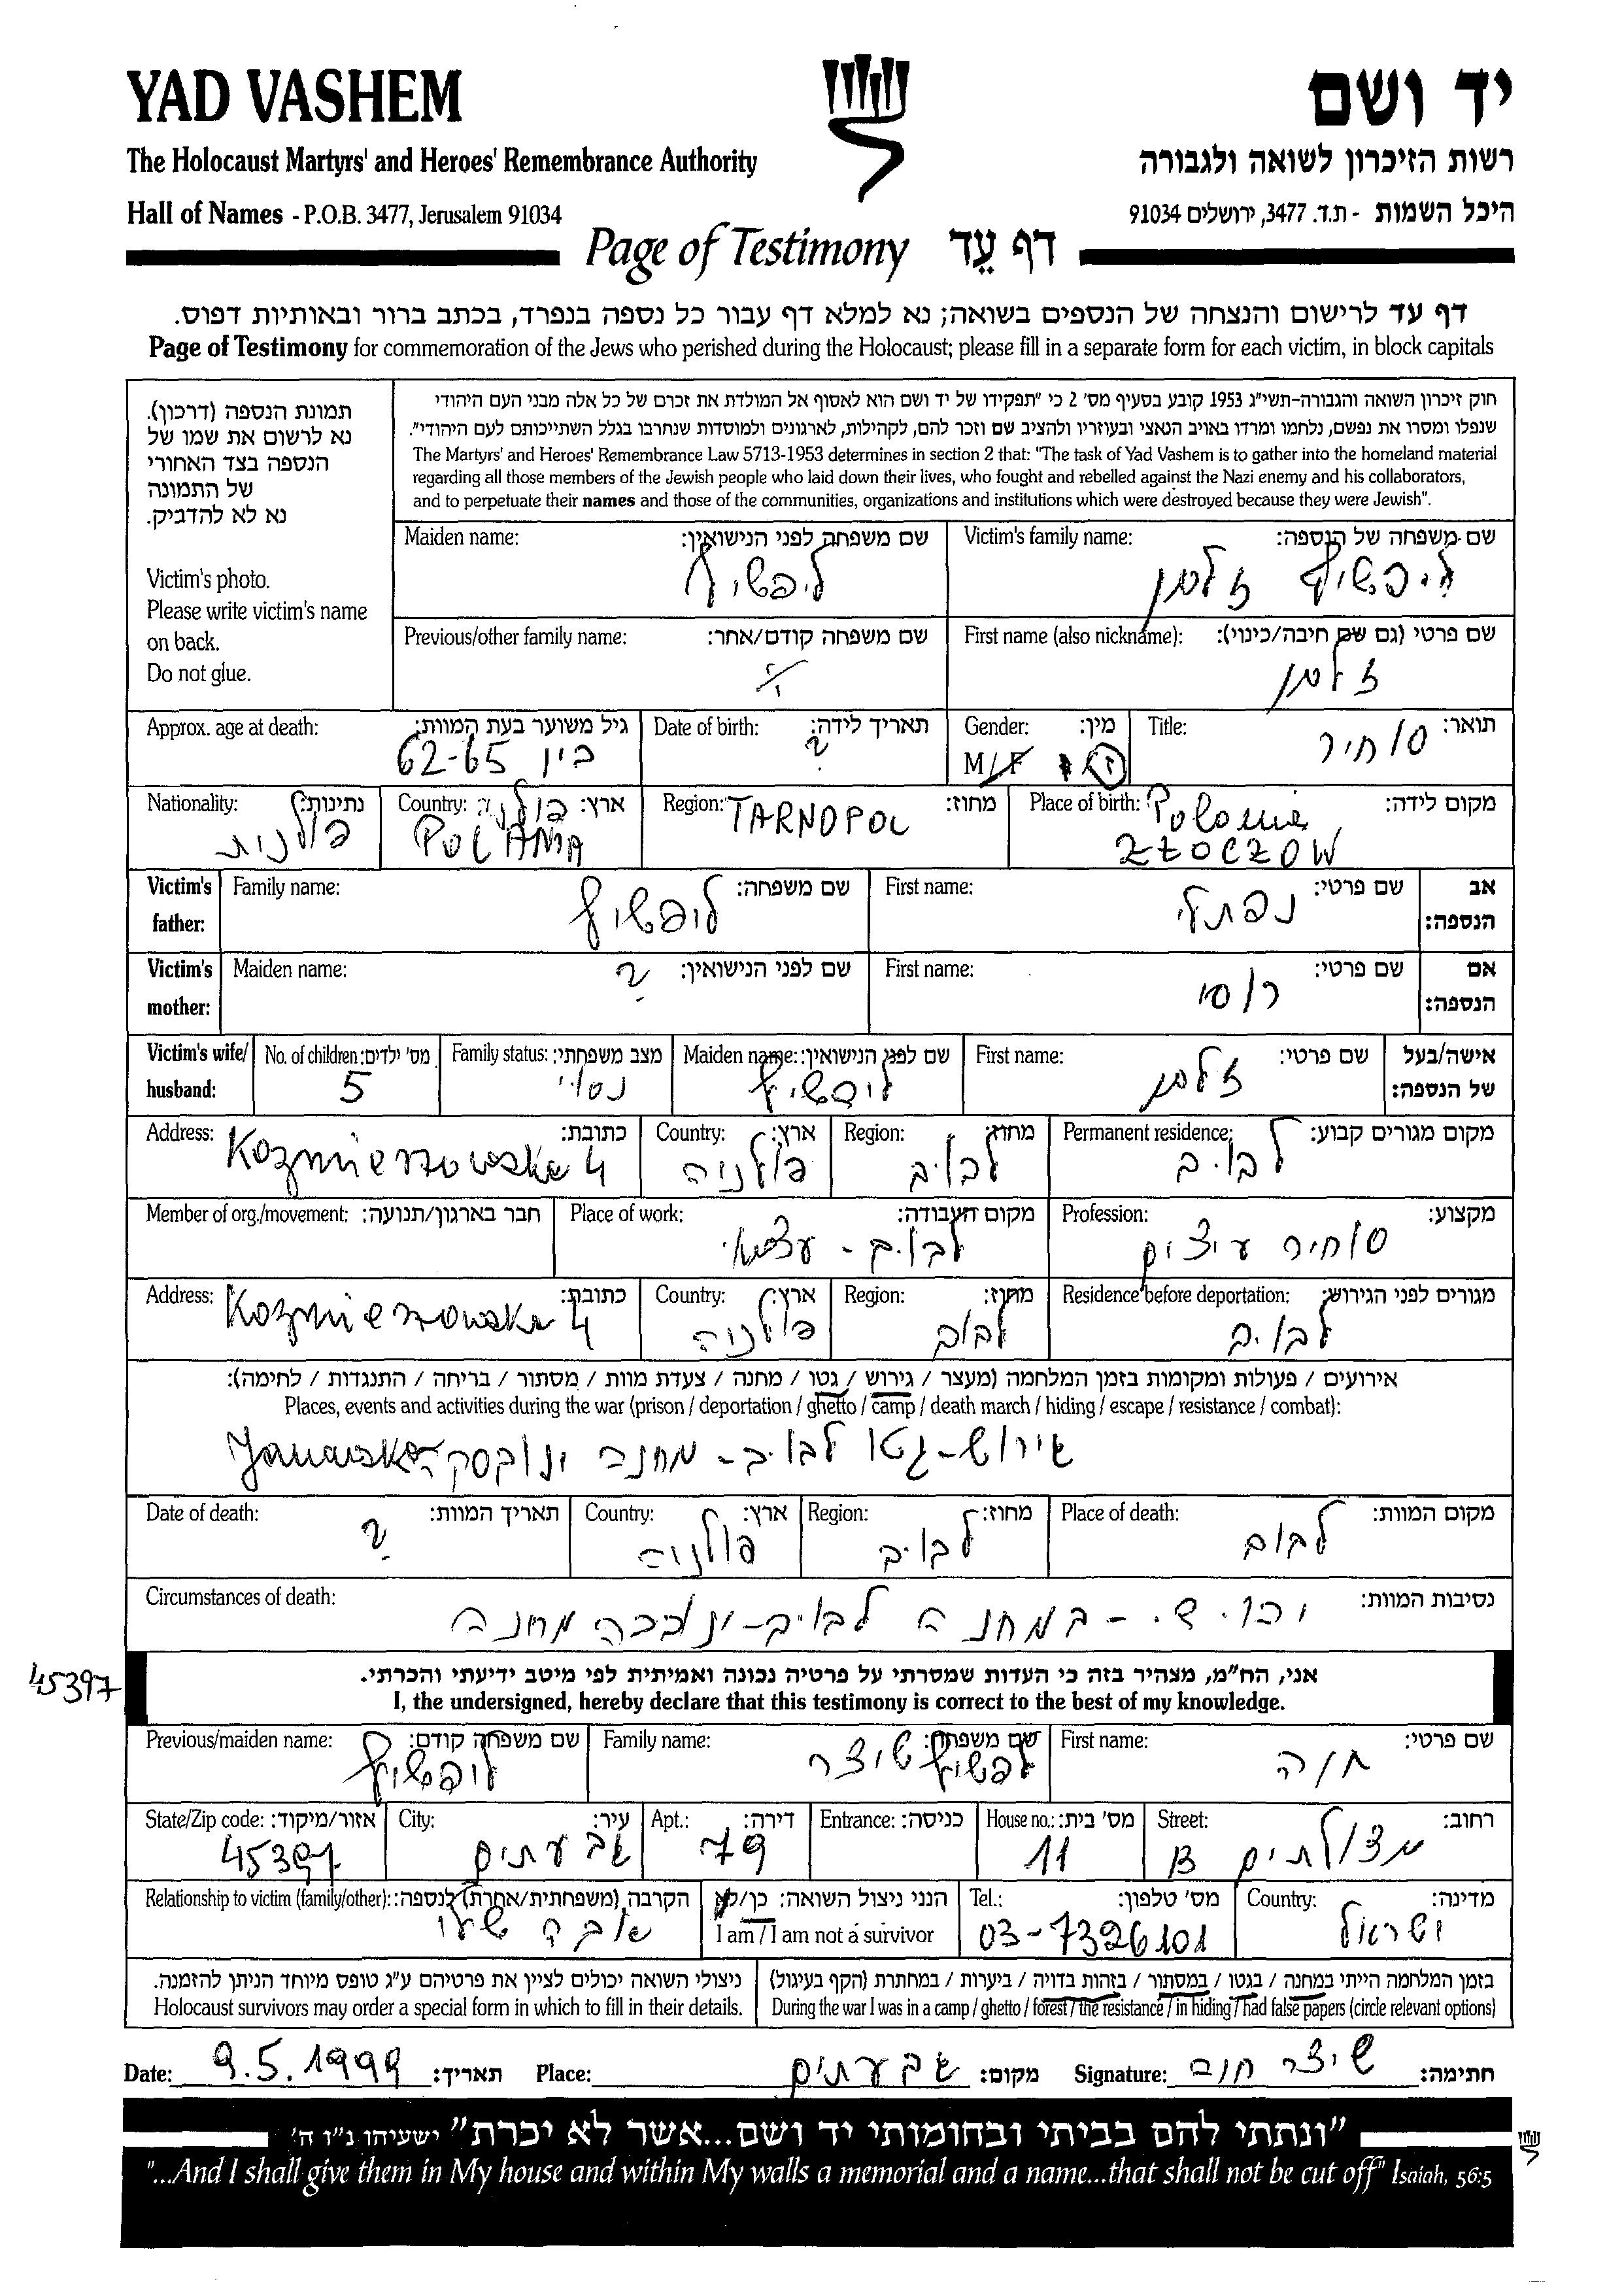 YAD VASHEM
יד ושם
The Holocaust Martyrs' and Heroes' Remembrance Authority
רשות הזיכרון לשואה ולגבורה
Hall of Names - P.O.B. 3477, Jerusalem 91034
היכל השמות - ת.ד. 3477, ירושלים 91034
Page of Testimony דף עֵד
דף עד לרישום והנצחה של הנספים בשואה; נא למלא דף עבור כל נספה בנפרד, בכתב ברור ובאותיות דפוס.
Page of Testimony for commemoration of the Jews who perished during the Holocaust; please fill in a separate form for each victim, in block capitals
תמונת הנספה (דרכון).
נא לרשום את שמו של
הנספה בצד האחורי
של התמונה
נא לא להדביק.
Victim's photo.
Please write victim's name
on back.
Do not glue.
חוק זיכרון השואה והגבורה-תשי"ג 1953 קובע בסעיף מס' 2 כי "תפקידו של יד ושם הוא לאסוף אל המולדת את זכרם של כל אלה מבני העם היהודי
שנפלו ומסרו את נפשם, נלחמו ומרדו באויב הנאצי ובעוזריו ולהציב שם וזכר להם, לקהילות, לארגונים ולמוסדות שנחרבו בגלל השתייכותם לעם היהודי".
The Martyrs' and Heroes' Remembrance Law 5713-1953 determines in section 2 that: "The task of Yad Vashem is to gather into the homeland material
regarding all those members of the Jewish people who laid down their lives, who fought and rebelled against the Nazi enemy and his collaborators,
and to perpetuate their names and those of the communities, organizations and institutions which were destroyed because they were Jewish".
Victim's family name: שם משפחה של הנספה:
ליפשיץ זלמן
Maiden name: שם משפחה לפני הנישואין:
ליפשיץ
First name (also nickname): שם פרטי (גם שם חיבה/כינוי):
זלמן
Previous/other family name: שם משפחה קודם/אחר:
Title: תואר:
סוחיר
Gender: מין:
M/F ז
Date of birth: תאריך לידה:
?
Approx. age at death: גיל משוער בעת המוות:
בין 62-65
Place of birth: מקום לידה:
Polonia
ZŁOCZOW
Region: מחוז:
TARNOPOL
Country: ארץ:
פולניה
POLANIA
Nationality: נתינות:
פולנית
Victim's father: אב הנספה:
First name: שם פרטי:
נפתלי
Family name: שם משפחה:
ליפשיץ
Victim's mother: אם הנספה:
First name: שם פרטי:
רוסי
Maiden name: שם לפני הנישואין:
?
Victim's wife/husband: אישה/בעל של הנספה:
First name: שם פרטי:
זלמן
Maiden name: שם לפני הנישואין:
ליפשיץ
Family status: מצב משפחתי:
נסוי
No. of children: מס' ילדים:
5
Permanent residence: מקום מגורים קבוע:
לבוב
Region: מחוז:
לבוב
Country: ארץ:
פולניה
Address: כתובת:
Kozmierzowska 4
Profession: מקצוע:
סוחיר עיצים
Place of work: מקום העבודה:
לבוב - עצמאי
Member of org./movement: חבר בארגון/תנועה:
Residence before deportation: מגורים לפני הגירוש:
לבוב
Region: מחוז:
לבוב
Country: ארץ:
פולניה
Address: כתובת:
Kozmierzowska 4
אירועים / פעולות ומקומות בזמן המלחמה (מעצר / גירוש / גטו / מחנה / צעדת מוות / מסתור / בריחה / התנגדות / לחימה):
Places, events and activities during the war (prison / deportation / ghetto / camp / death march / hiding / escape / resistance / combat):
גירוש-גטו לבוב - מחנה ינובסקה Janowska
Place of death: מקום המוות:
לבוב
Region: מחוז:
לבוב
Country: ארץ:
פולניה
Date of death: תאריך המוות:
?
Circumstances of death: נסיבות המוות:
במחנה לבוב מחנה
אני, הח"מ, מצהיר בזה כי העדות שמסרתי על פרטיה נכונה ואמיתית לפי מיטב ידיעתי והכרתי.
I, the undersigned, hereby declare that this testimony is correct to the best of my knowledge.
45397
First name: שם פרטי:
חוה
Family name: שם משפחה:
לפשיץ שיצר
Previous/maiden name: שם משפחה קודם:
ליפשיץ
Street: רחוב:
מצולתים 13
House no.: מס' בית:
11
Entrance: כניסה:
Apt.: דירה:
79
City: עיר:
גבעתים
State/Zip code: אזור/מיקוד:
45397
Country: מדינה:
ישראל
Tel.: מס' טלפון:
03-7326101
הנני ניצול השואה: כן/לא
I am / I am not a survivor
Relationship to victim (family/other): הקרבה (משפחתית/אחרת) לנספה:
אבה שלו
בזמן המלחמה הייתי במחנה / בגטו / במסתור / בזהות בדויה / ביערות / במחתרת (הקף בעיגול)
During the war I was in a camp / ghetto / forest / the resistance / in hiding / had false papers (circle relevant options)
ניצולי השואה יכולים לציין את פרטיהם ע"ג טופס מיוחד הניתן להזמנה.
Holocaust survivors may order a special form in which to fill in their details.
Date: 9.5.1999 תאריך: Place: גבעתים מקום: Signature: שיצר חוה חתימה:
"ונתתי להם בביתי ובחומותי יד ושם...אשר לא יכרת" ישעיהו נ"ו ה'
"...And I shall give them in My house and within My walls a memorial and a name...that shall not be cut off" Isaiah, 56:5